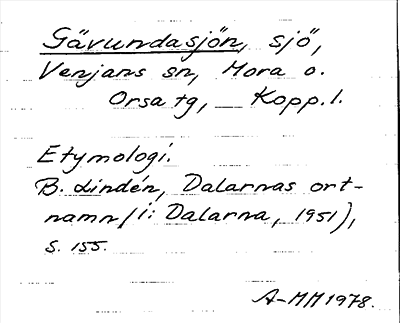 Gävundasjön, sjö,
Venjans sn, Mora o.
Orsa tg, Kopp. l.
Etymologi.
B. Lindén, Dalarnas ort-
namn (i: Dalarna, 1951),
s. 155.
A-MM 1978.